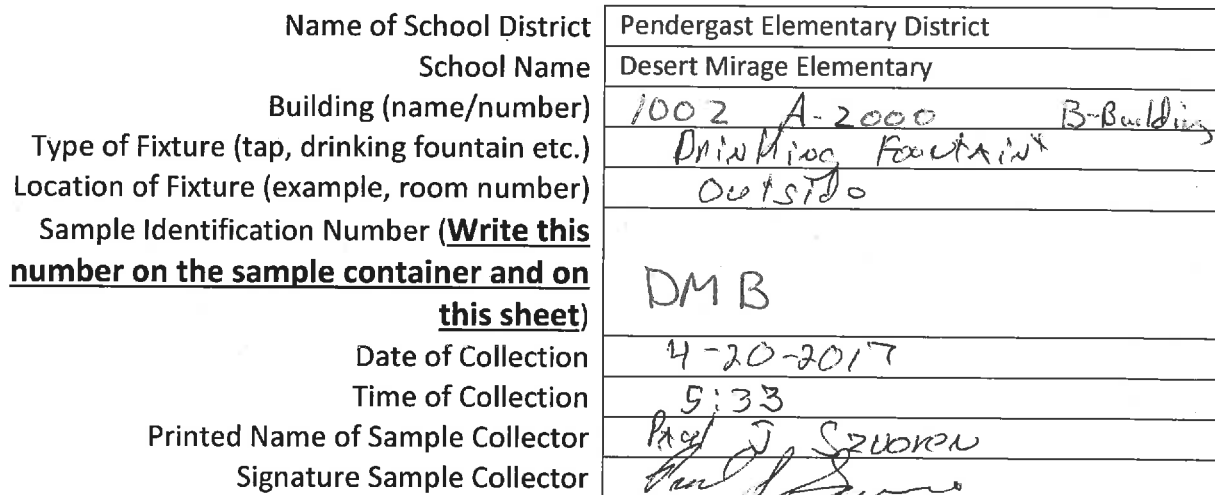 Name of School District Pendergast Elementary District
School Name Desert Mirage Elementary
Building (name/number) 1002 A-2000 B-Building
Type of Fixture (tap, drinking fountain etc.) Drinking Fountain
Location of Fixture (example, room number) Outside
Sample Identification Number (Write this
number on the sample container and on
this sheet) DMB
Date of Collection 4-20-2017
Time of Collection 5:33
Printed Name of Sample Collector Paul J
Signature Sample Collector